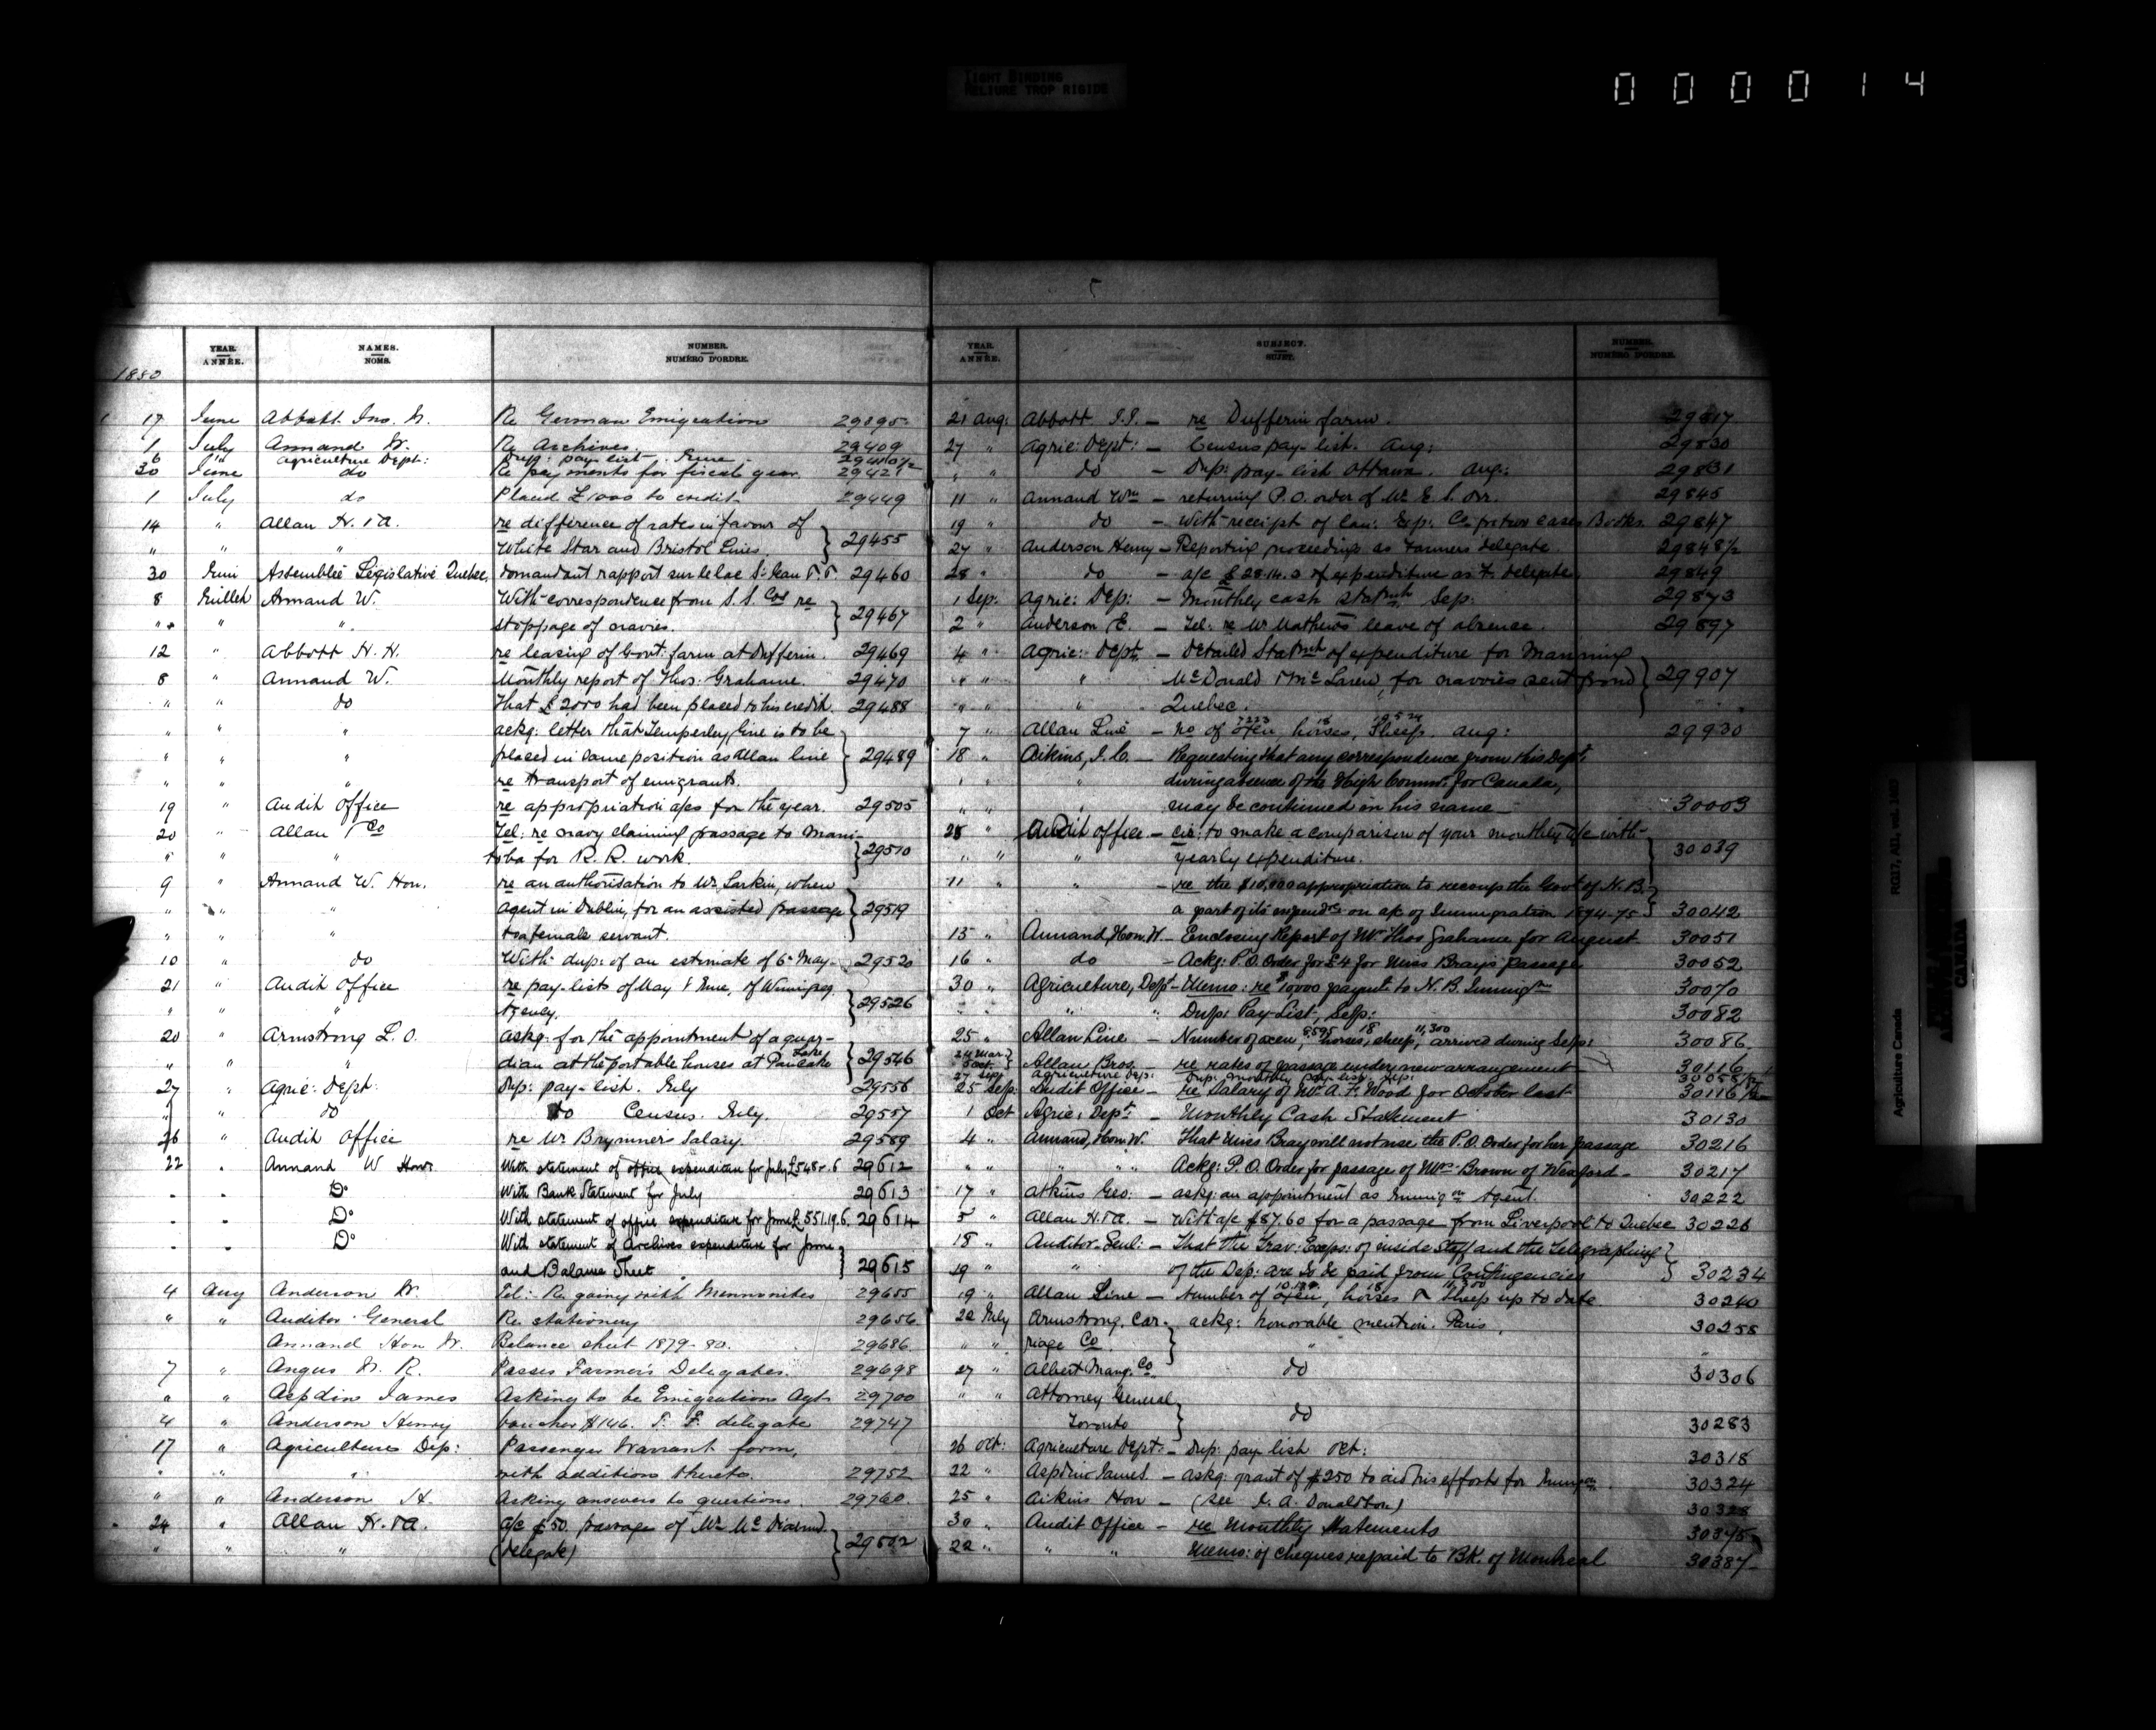 TIGHT BINDING
RELIURE TROP RIGIDE
0 0 0 0 1 4
5
YEAR. ANNÉE. NAMES. NOMS. NUMBER. NUMÉRO D'ORDRE.
1880
17 June Abbott Jno. H. Re German Emigration 29395
1 July Annand W. Re Archives. 29409
6 " Agriculture Dept: Dup: pay-list June 29410½
30 June do Re payments for fiscal year. 29421
1 July do Placed £1000 to credit 29449
14 " Allan H. & A. re difference of rates in favour of
" " " White Star and Bristol Lines. } 29455
30 Juin Assemblée Législative Quebec, demandant rapport sur le lac St Jean 29460
8 Juillet Annand W. With correspondence from S.S. Cos re
" " " stoppage of navies. } 29467
12 " Abbott H. H. re leasing of Govt: farm at Dufferin. 29469
8 " Annand W. Monthly report of Thos: Grahame. 29470
" " do That £2000 had been placed to his credit. 29488
" " " ackg: letter that Temperley Line is to be
" " " placed in same position as Allan line } 29489
" " " re transport of emigrants.
19 " Audit Office re appropriation a/cs for the year. 29505
20 " Allan & Co Tel: re navy claiming passage to Mani-
" " toba for R. R. work. } 29510
9 " Annand W. Hon. re an authorisation to Mr Larkin, when
" " " agent in Dublin, for an assisted passage } 29519
" " " to a female servant.
10 " do With dup: of an estimate of 6 May 29520
21 " Audit Office re pay-lists of May & June, of Winnipeg
" " " Agency. } 29526
20 " Armstrong L. O. askg: for the appointment of a guar-
" " " dian at the portable houses at Pancake Lake } 29546
27 " Agric: Dept: Dup: pay-list. July 29556
" " do do Census. July. 29557
26 " Audit Office re Mr Brymner's Salary. 29589
22 " Annand W Honr. With statement of office expenditure for July £548-.6 29612
" " Do With Bank Statement for July 29613
" " Do With statement of office expenditure for June £551.19.6. 29614
" " Do With statement of Archives expenditure for June
and Balance Sheet } 29615
4 Aug Anderson W. Tel: Re going with Mennonites 29655
" " Auditor General Re stationery 29656
Annand Hon W. Balance sheet 1879-80. 29686
7 " Angus W. R. Passes Farmers Delegates. 29698
" " Aspdin James Asking to be Emigrations Agt. 29700
4 " Anderson Henry Voucher $146. T. F. delegate 29747
17 " Agriculture Dep: Passenger Warrant form,
" " " with addition thereto. 29752
" " Anderson H. Asking answers to questions. 29760
24 " Allan H. & A. a/c £50. passage of Mr
" " " (delegate) } 29802
YEAR. ANNÉE. SUBJECT. SUJET. NUMBER. NUMÉRO D'ORDRE.
21 Aug: Abbott J.J. — re Dufferin farm. 29817
27 " Agric: Dept: — Census pay-list. Aug: 29830
" " do — Dup: pay-list Ottawa. Aug: 29831
11 " Annand Wm — returning P.O. order of Mr E. S. Orr. 29845
19 " do — With receipt of Can: Exp: Co for two cases Books. 29847
27 " Anderson Henry — Reporting proceedings as Farmers delegate 29848½
28 " do — a/c $28.14.3 of expenditure as F. delegate. 29849
1 Sep: Agric: Dep: — Monthly cash statmt. Sep: 29873
2 " Anderson E. — Tel: re Mr Mathews leave of absence. 29897
4 " Agric: Dept: — Detailed Statmt of expenditure for Manning
" " " McDonald & McLaren, for navvies sent from } 29907
" " " Quebec.
7 " Allan Line — No of 7223 Oxen, 18 horses, Sheep. Aug: 29930
18 " Aikins, J.C. — Requesting that any correspondence from this Dept
" " during absence of the High Commr. for Canada,
" " " may be continued in his name — 30003
28 " Audit office — cir: to make a comparison of your monthly a/c with
" " " yearly expenditure. } 30039
11 " " — re the $10,000 appropriation to recoup the Govt of N.B.
a part of its expendre on a/c of Immigration 1874-75 } 30042
15 " Annand, Hon. W. — Enclosing Report of Mr Thos Grahame for August 30051
16 " do — Ackg: P.O. Order for £4 for Miss Bray's passage 30052
30 " Agriculture, Dept — Memo: re $10,000 paymt to N.B. Immigtn 30070
" " Dup: Pay-List, Sep: 30082
25 " Allan Line — Number of oxen, 8595 horses, 18 sheep, 11,300 arrived during Sep: 30086
24 Mar } 5 Oct. Allan Bros. — re rates of passage under new arrangement — 30116
27 Sep Agriculture Dep: Dup: monthly pay-list, Sep:
25 Sep: Audit Office — re Salary of Mr A. F. Wood for October last 30116½
1 Oct Agric: Dept: — Monthly Cash Statement 30130
4 " Annand, Hon. W. That Miss Bray will not use the P.O. Order for her passage 30216
" " " " Ackg: P.O. Order for passage of Mrs Brown of Wexford — 30217
17 " Atkins Geo: — askg: an appointment as Immign Agent. 30222
5 " Allan H. & A. — With a/c $87.60 for a passage from Liverpool to Quebec 30226
18 " Auditor Genl: — That the Trav: Exps: of inside Staff and the Telegraphing
19 " " of the Dep: are to be paid from Contingencies } 30234
19 " Allan Line — Number of Oxen, horses 18 & sheep 11,300 up to date. 30240
22 July Armstrong, Car- ackg: honorable mention. Paris, 30258
" " riage Co. } "
27 " Albert Mang. Co. do 30306
" " Attorney General
Toronto } do 30283
26 Oct: Agriculture Dept: — Dup: pay list Oct: 30318
22 " Aspdin James. — askg: grant of $250 to aid his efforts for Immign. 30324
25 " Aikins Hon — (see J. A. Donaldson) 30328
30 " Audit Office — re Monthly Statements 30345
22 " " " Memo: of cheques repaid to BK. of Montreal 30387
Agriculture Canada RG17, A11, vol. 1483
PUBLIC ARCHIVES
CANADA